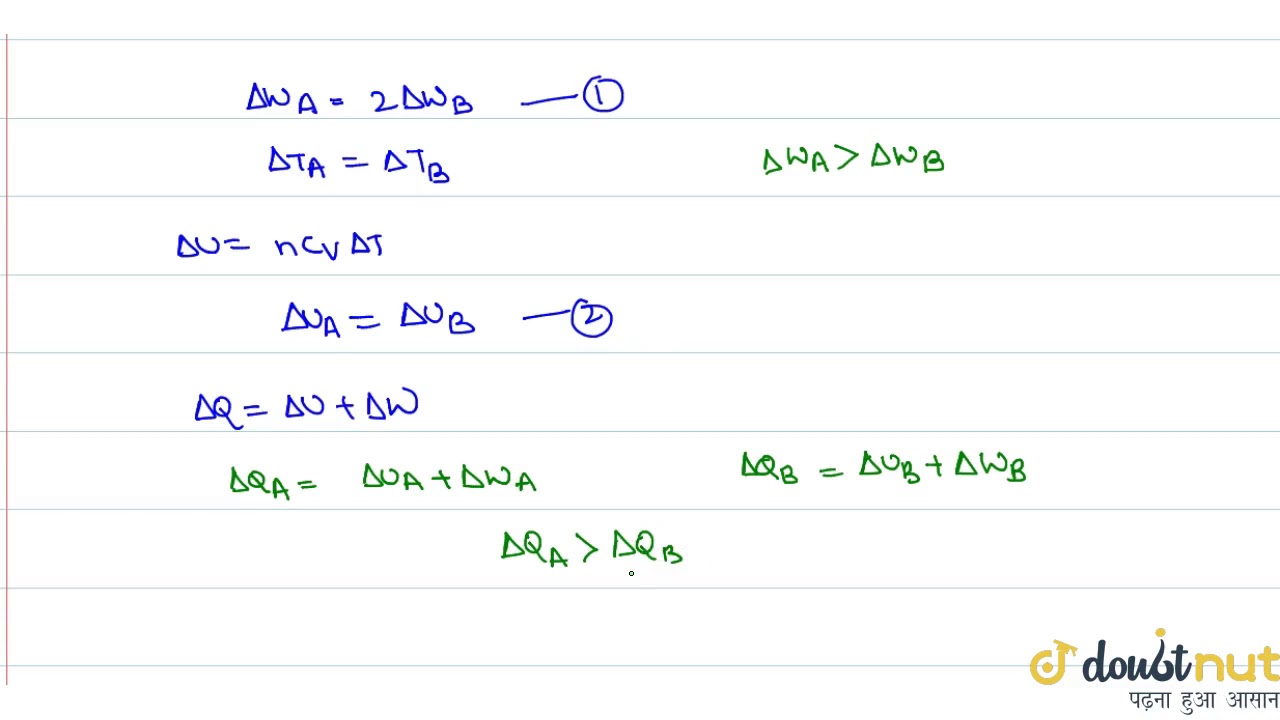 ΔW_A = 2ΔW_B —— ①
ΔT_A = ΔT_B
ΔW_A > ΔW_B
ΔU = nC_V ΔT
ΔU_A = ΔU_B —— ②
ΔQ = ΔU + ΔW
ΔQ_A = ΔU_A + ΔW_A
ΔQ_B = ΔU_B + ΔW_B
ΔQ_A > ΔQ_B
doubtnut
पढ़ना हुआ आसान